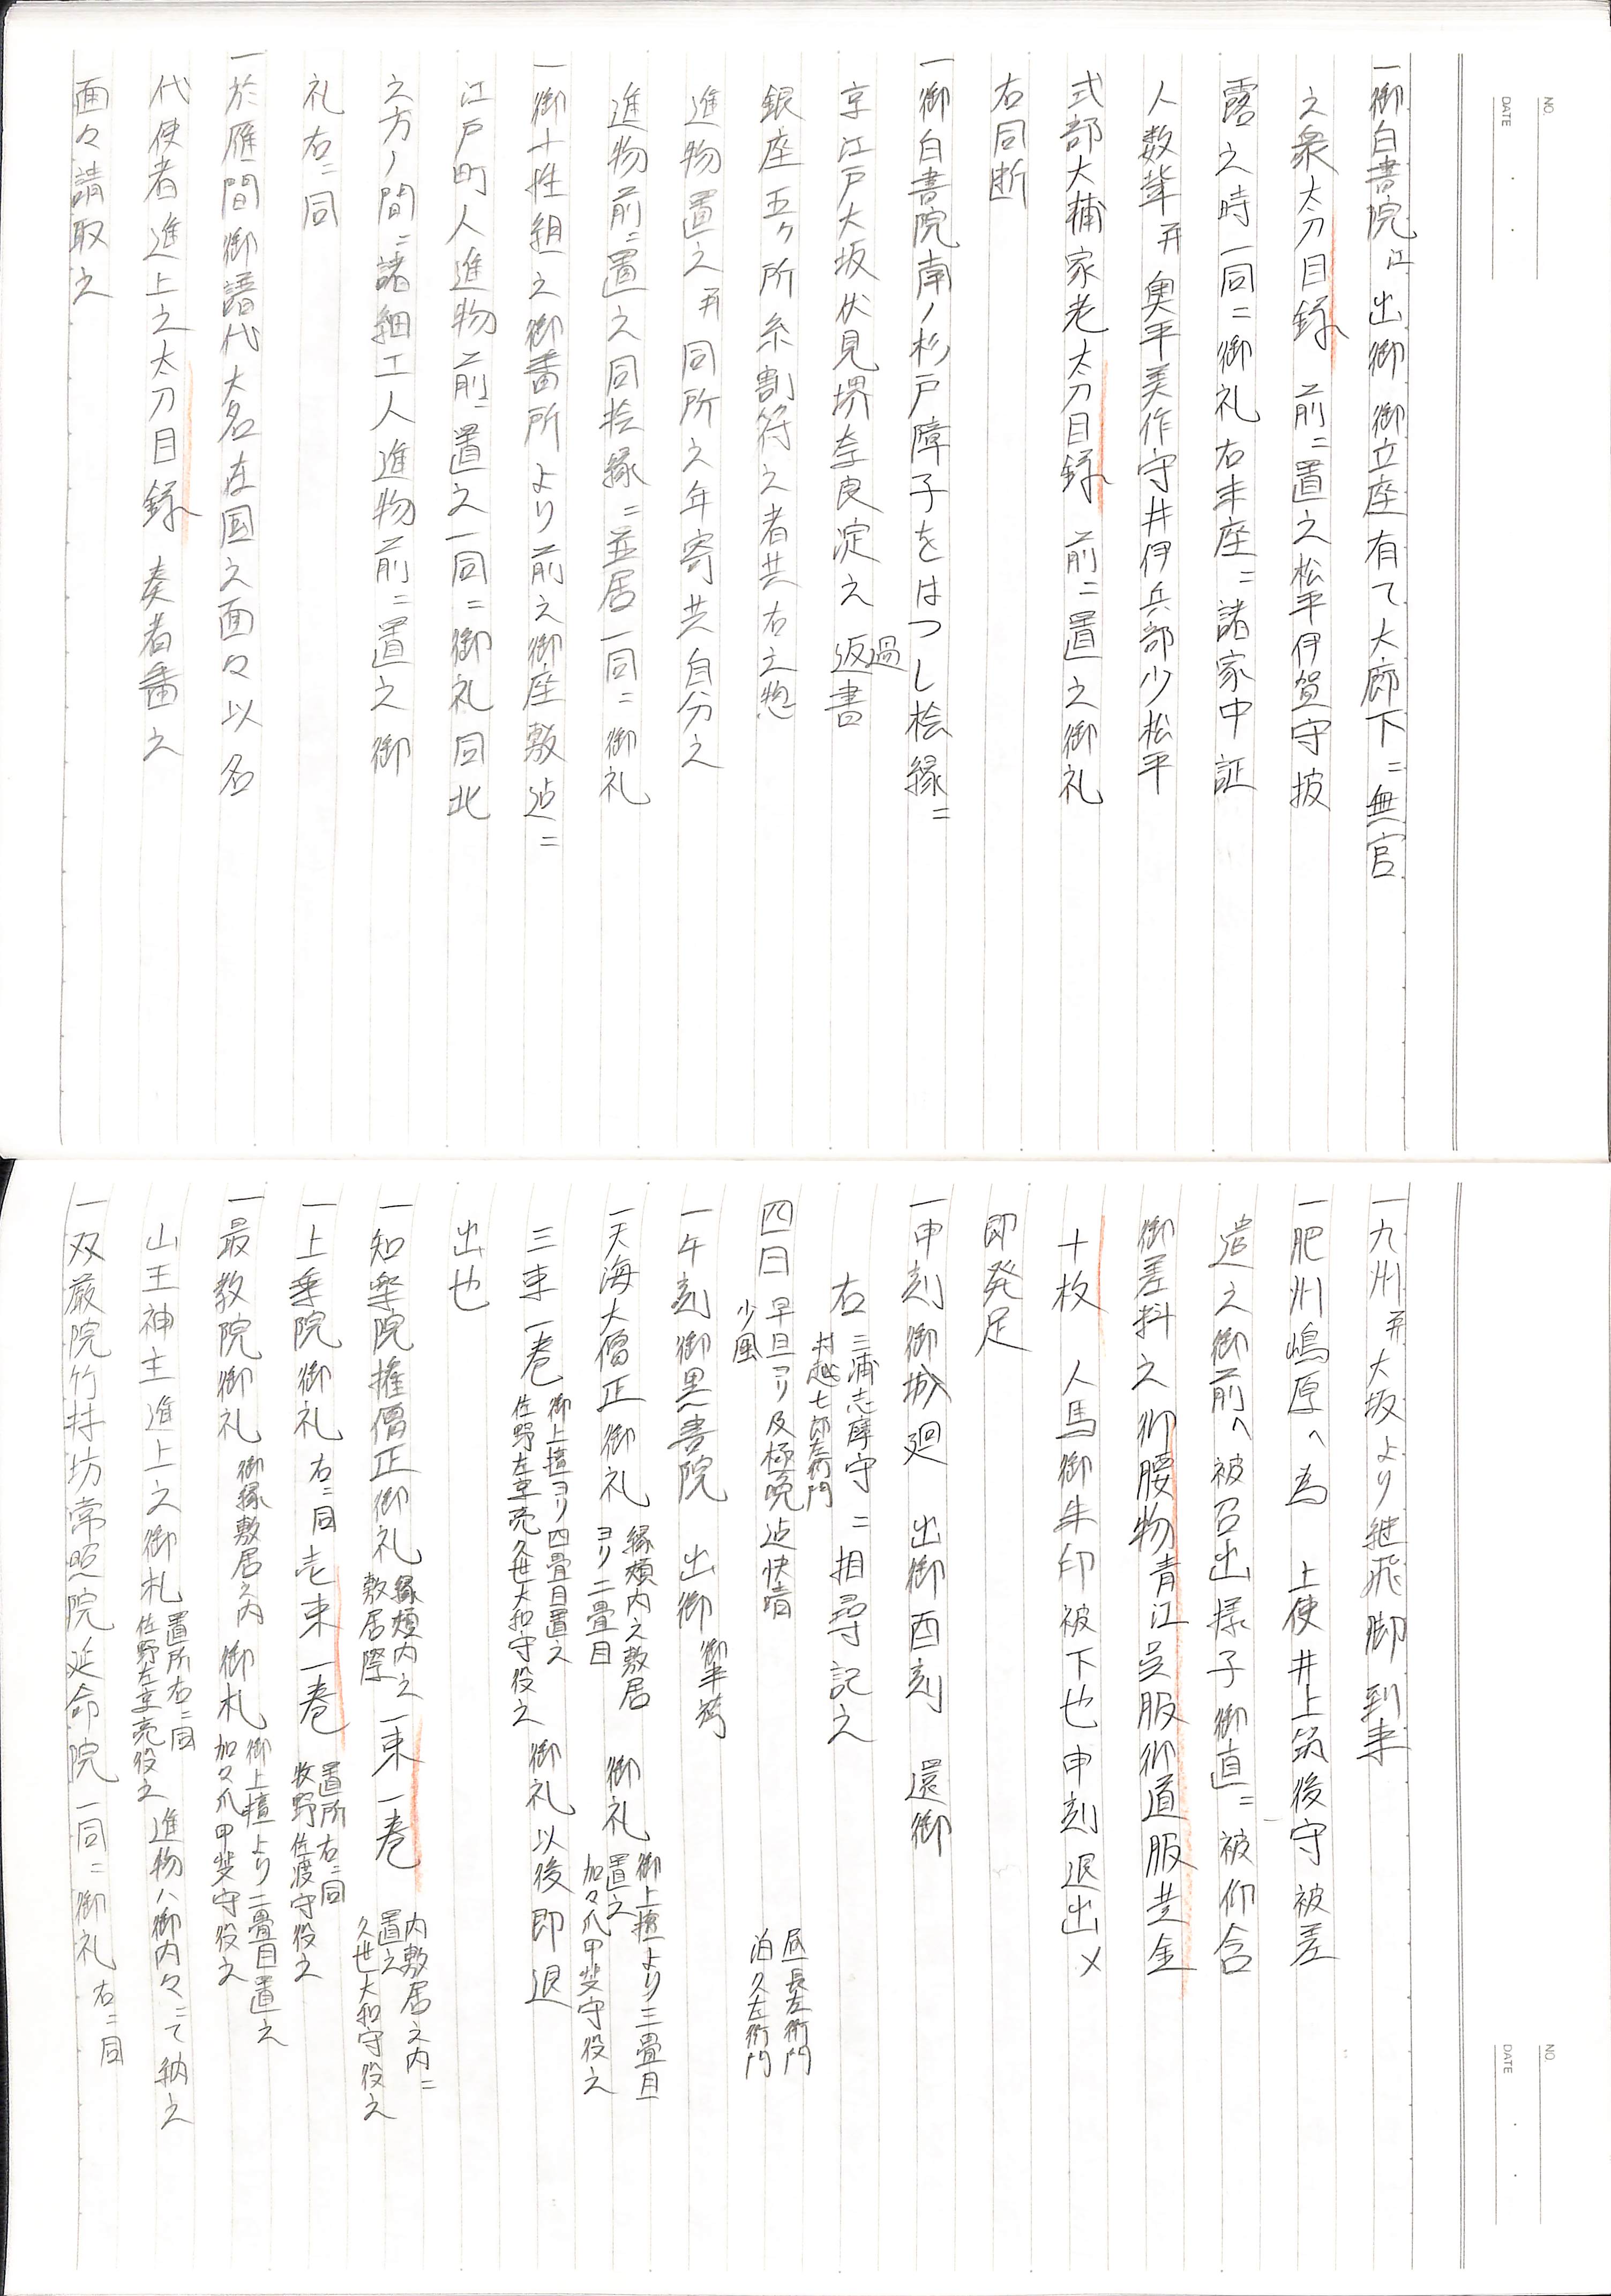 NO.
DATE
一御白書院江 出御 御立座有て大廊下ニ無官
之衆太刀目録 前ニ置之松平伊賀守披
露之時一同ニ御礼右半座ニ諸家中証
人数輩并奥平美作守井伊兵部少松平
式部大輔家老太刀目録 前ニ置之御礼
右同断
一御白書院南ノ杉戸障子をはつし桧縁ニ
京江戸大坂伏見堺奈良淀之 過 返書
銀座五ヶ所糸割符之者共右之惣
進物置之并同所之年寄共自分之
進物前ニ置之同桧縁ニ並居一同ニ御礼
一御十性組之御番所より前之御座敷迠ニ
江戸町人進物前ニ置之一同ニ御礼同北
之方ノ間ニ諸細工人進物前ニ置之御
礼右ニ同
一於雁間御譜代大名在国之面々以名
代使者進上之太刀目録 奏者番之
面々請取之
NO.
DATE
一九州并大坂より継飛脚到来
一肥州嶋原へ為 上使井上筑後守被差
遣之御前へ被召出様子御直ニ被仰含
御差料之御腰物青江呉服御道服并金
十枚 人馬御朱印被下也申刻退出〆
即発足
一申刻御城廻 出御酉刻 還御
右 三浦志摩守 村越七郎左衛門 ニ相尋記之
四日 早旦ヨリ及極晩迠快晴 少風 昼長左衛門 泊久左衛門
一午刻御黒書院 出御 御半袴
一天海大僧正御礼 縁頬内之敷居ヨリ二畳目 御礼 御上壇より三畳目置之 加々爪甲斐守役之
三束一巻 御上壇ヨリ四畳目置之 佐野左京亮久世大和守役之 御礼以後即退
出也
一知楽院権僧正御礼 縁頬内之敷居際 一束一巻 内敷居之内ニ置之 久世大和守役之
一上乗院御礼 右ニ同 壱束一巻 置所右ニ同 牧野佐渡守役之
一最教院御礼 御縁敷居之内 御札 御上壇より二畳目置之 加々爪甲斐守役之
山王神主進上之御札 置所右ニ同 佐野左京亮役之 進物ハ御内々ニて納之
一双厳院竹林坊常照院延命院一同ニ御礼 右ニ同